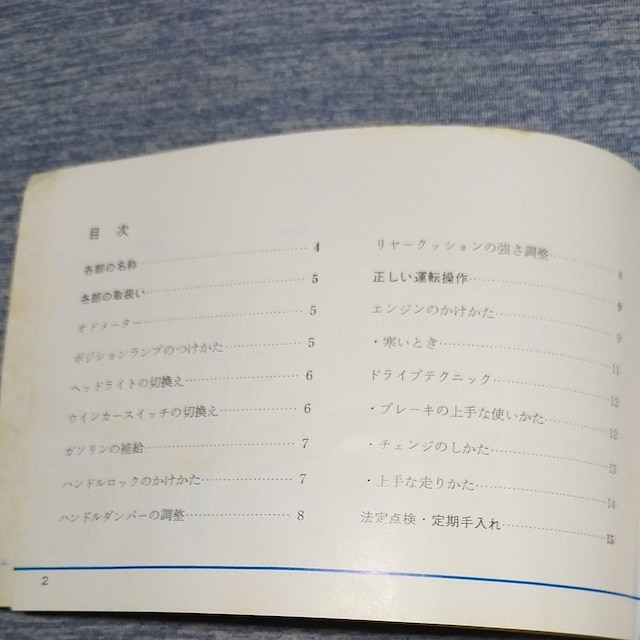 目次
各部の名称 4
各部の取扱い 5
オドメーター 5
ポジションランプのつけかた 5
ヘッドライトの切換え 6
ウインカースイッチの切換え 6
ガソリンの補給 7
ハンドルロックのかけかた 7
ハンドルダンパーの調整 8
リヤークッションの強さ調整 8
正しい運転操作 9
エンジンのかけかた 9
・寒いとき 11
ドライブテクニック 12
・ブレーキの上手な使いかた 12
・チェンジのしかた 13
・上手な走りかた 14
法定点検・定期手入れ 15
2